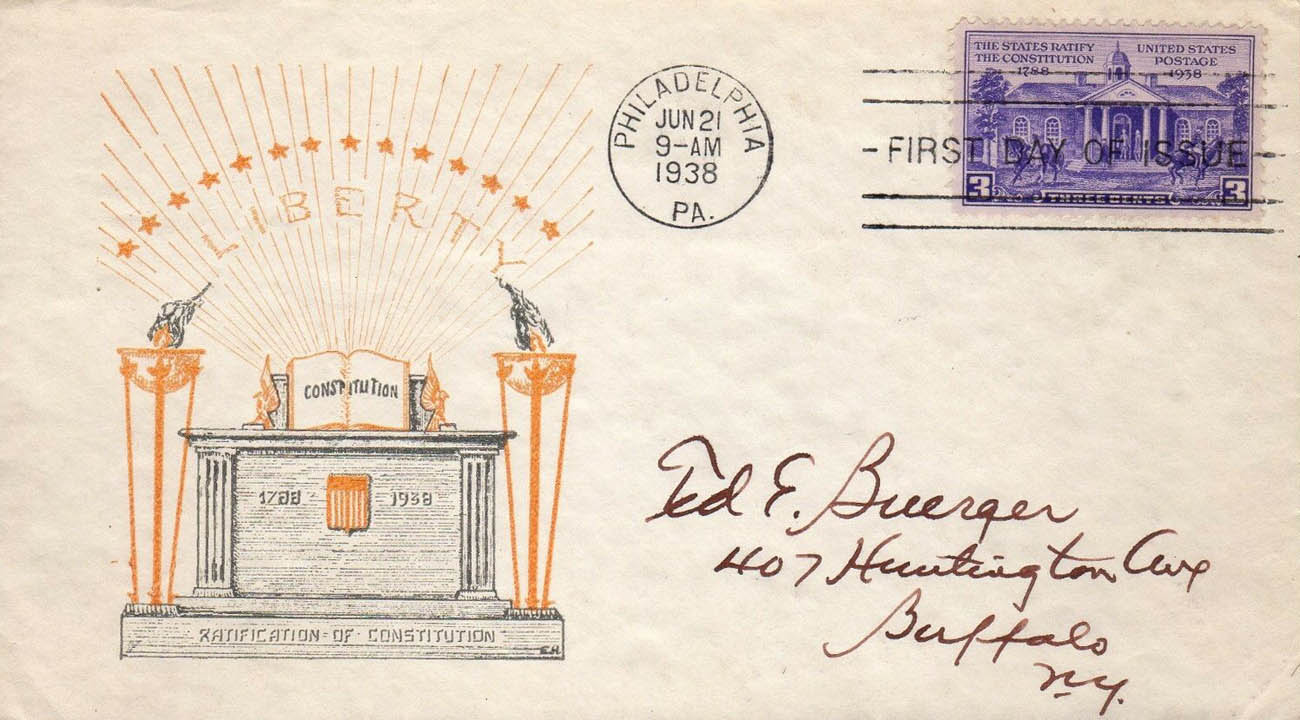 LIBERTY
CONSTITUTION
1788 1938
RATIFICATION-OF-CONSTITUTION
EH
PHILADELPHIA
JUN 21
9-AM
1938
PA.
THE STATES RATIFY
THE CONSTITUTION
1788
UNITED STATES
POSTAGE
1938
FIRST DAY OF ISSUE
3 THREE CENTS 3
Ted E. Buerger
407 Huntington Ave
Buffalo
N.Y.